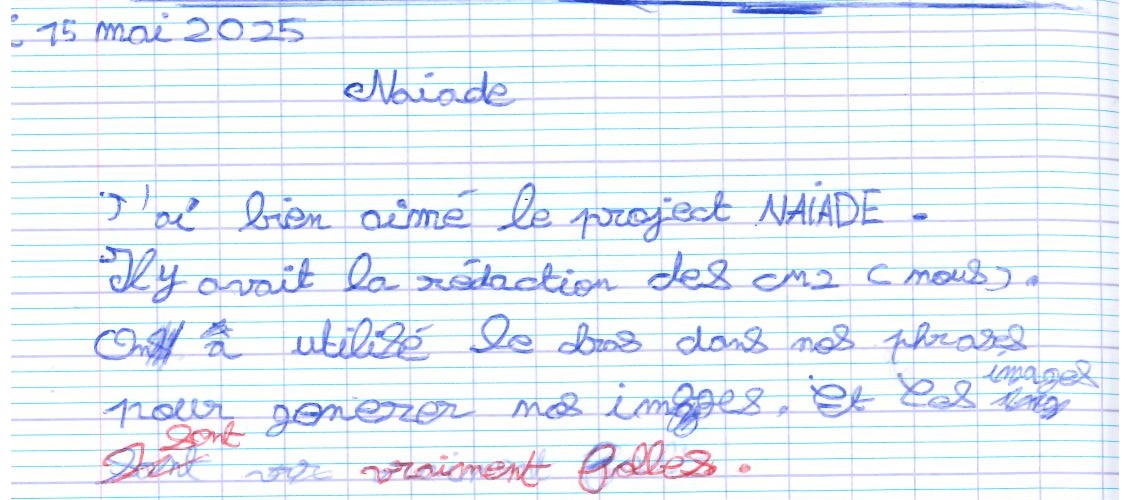 : 15 mai 2025
Naiade
J'ai bien aimé le project NAIADE.
Il y avait la rédaction des CM2 (nous).
On a utilisé le dans nos phrases
pour generer nos images. Et les images
sont vraiment folles.